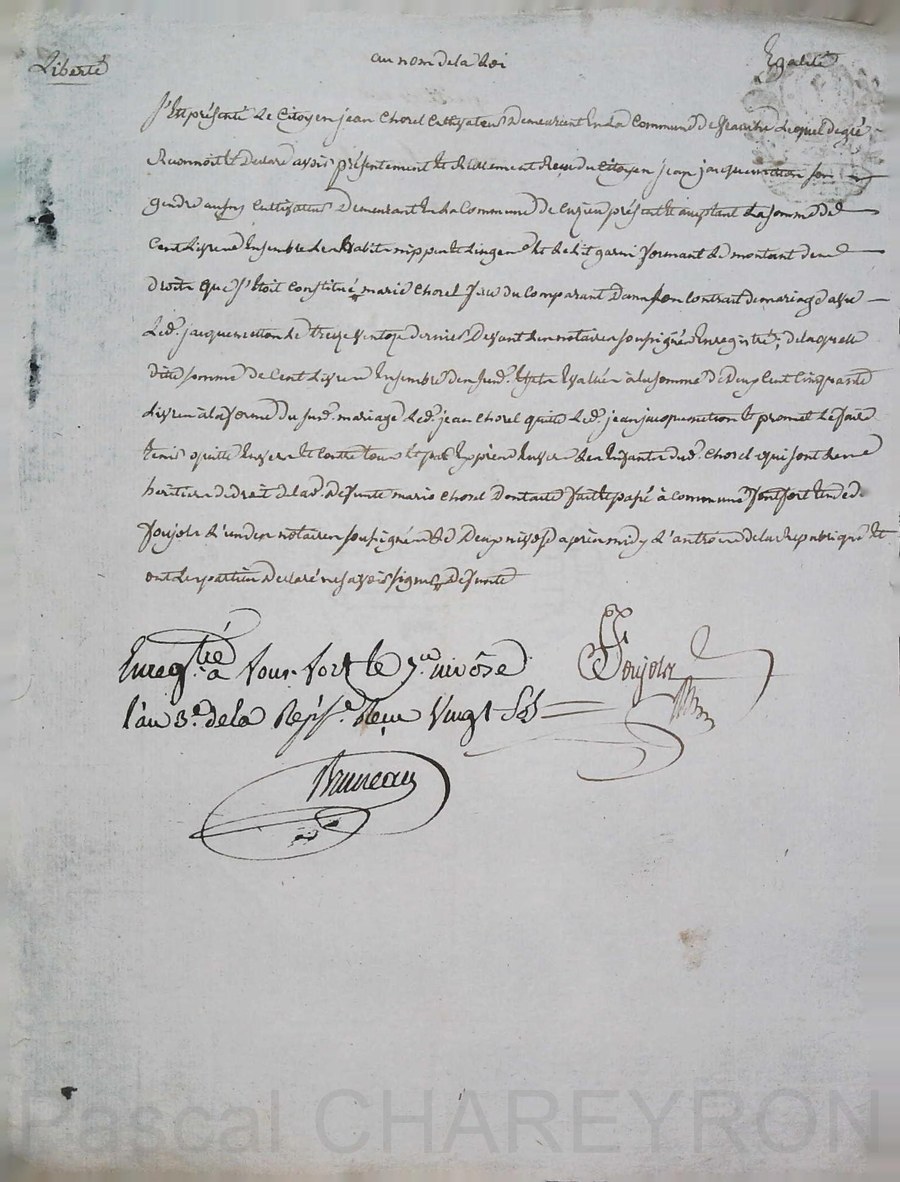 Liberté au nom de la Loi Egalité
S'Est présenté Le Citoyen jean Chorel Cultivateur Demeurant En La Commune de Lequel de gré
Reconnoit Et Declare avoir présentement Et Réellement Reçu du Citoyen jean jacque son
gendre aussy Cultivateur Demeurant En La Commune De présent Et aceptant La somme De
Cent Livres Ensembre Les habits nippes Et linges Et de lit garni formant Le montant des
droits que s'Etoit Constitué marie Chorel fille du Comparant Dans son Contrat de mariage avec
Led. jacque Le treize Dernier Devant Les notaires soussignés Enregistré; de laquelle
ditte somme de Cent Livres Ensembre à la somme De Deux Cent Cinquante
Livres à la forme du mariage Led. jean Chorel quitte Led. jean jacque Et promet Le faire
tenir quitte Envers Et Contre tous Et Les Enfants dud. Chorel qui sont Les
heritiers de droit de lad. Defunte marie Chorel Dont acte fait Et passé à Commune fontfort
foujols L'un des notaires soussignés Le Deux nivose après midy L'an troise de la Republique Et
ont Les parties Declaré ne savoir signer
Enregtré à fons fort le 7e nivôse
l'an 3e de la Repq.e Reçu Vingt Sols
Foujols
Bruneau
Pascal CHAREYRON